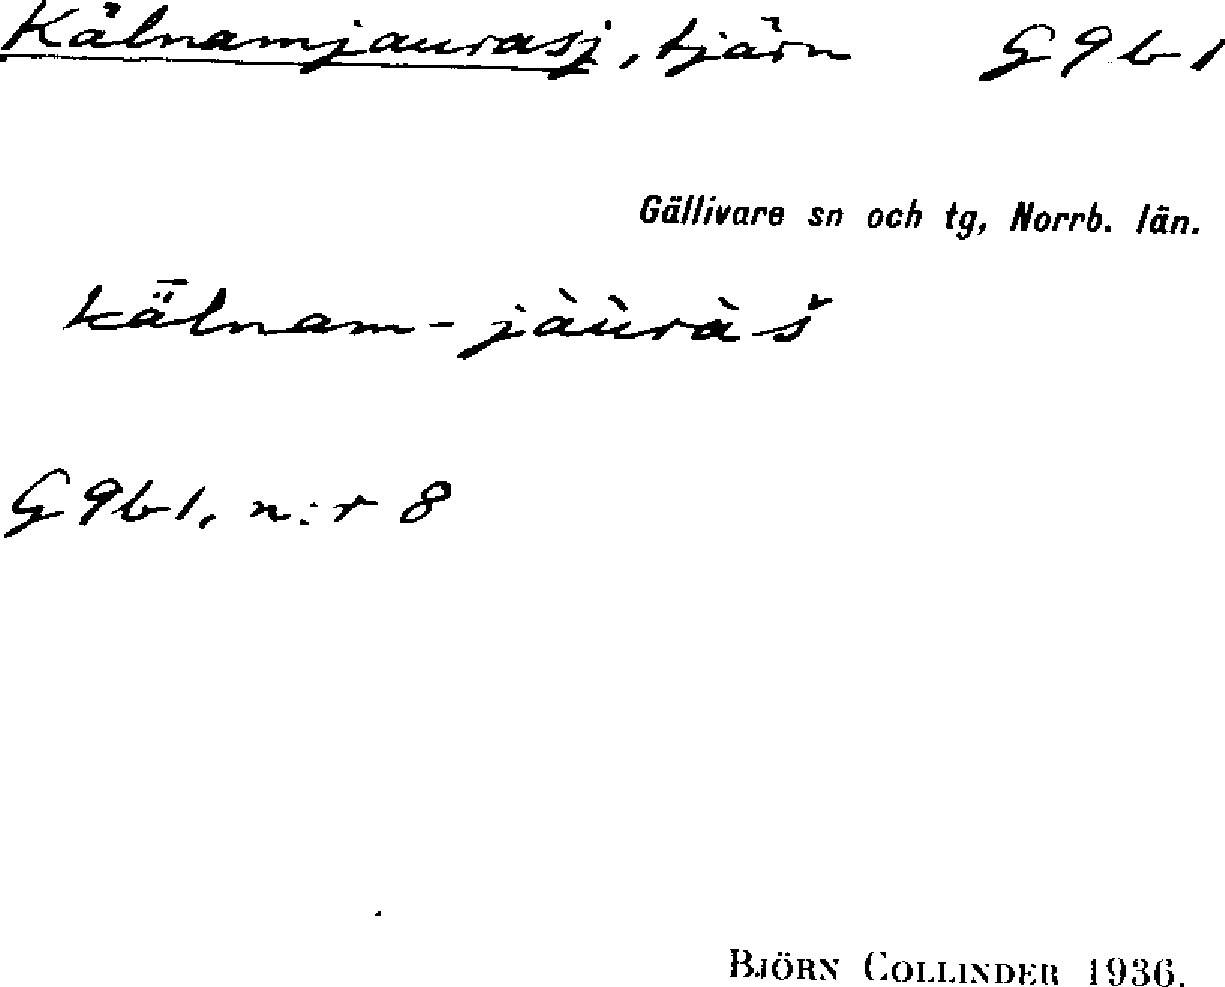 Kälnamjaurasj, tjärn G9b1
Gällivare sn och tg, Norrb. län.
kǟlnam-jàùràš
G9b1, n:r 8
BJÖRN COLLINDER 1936.